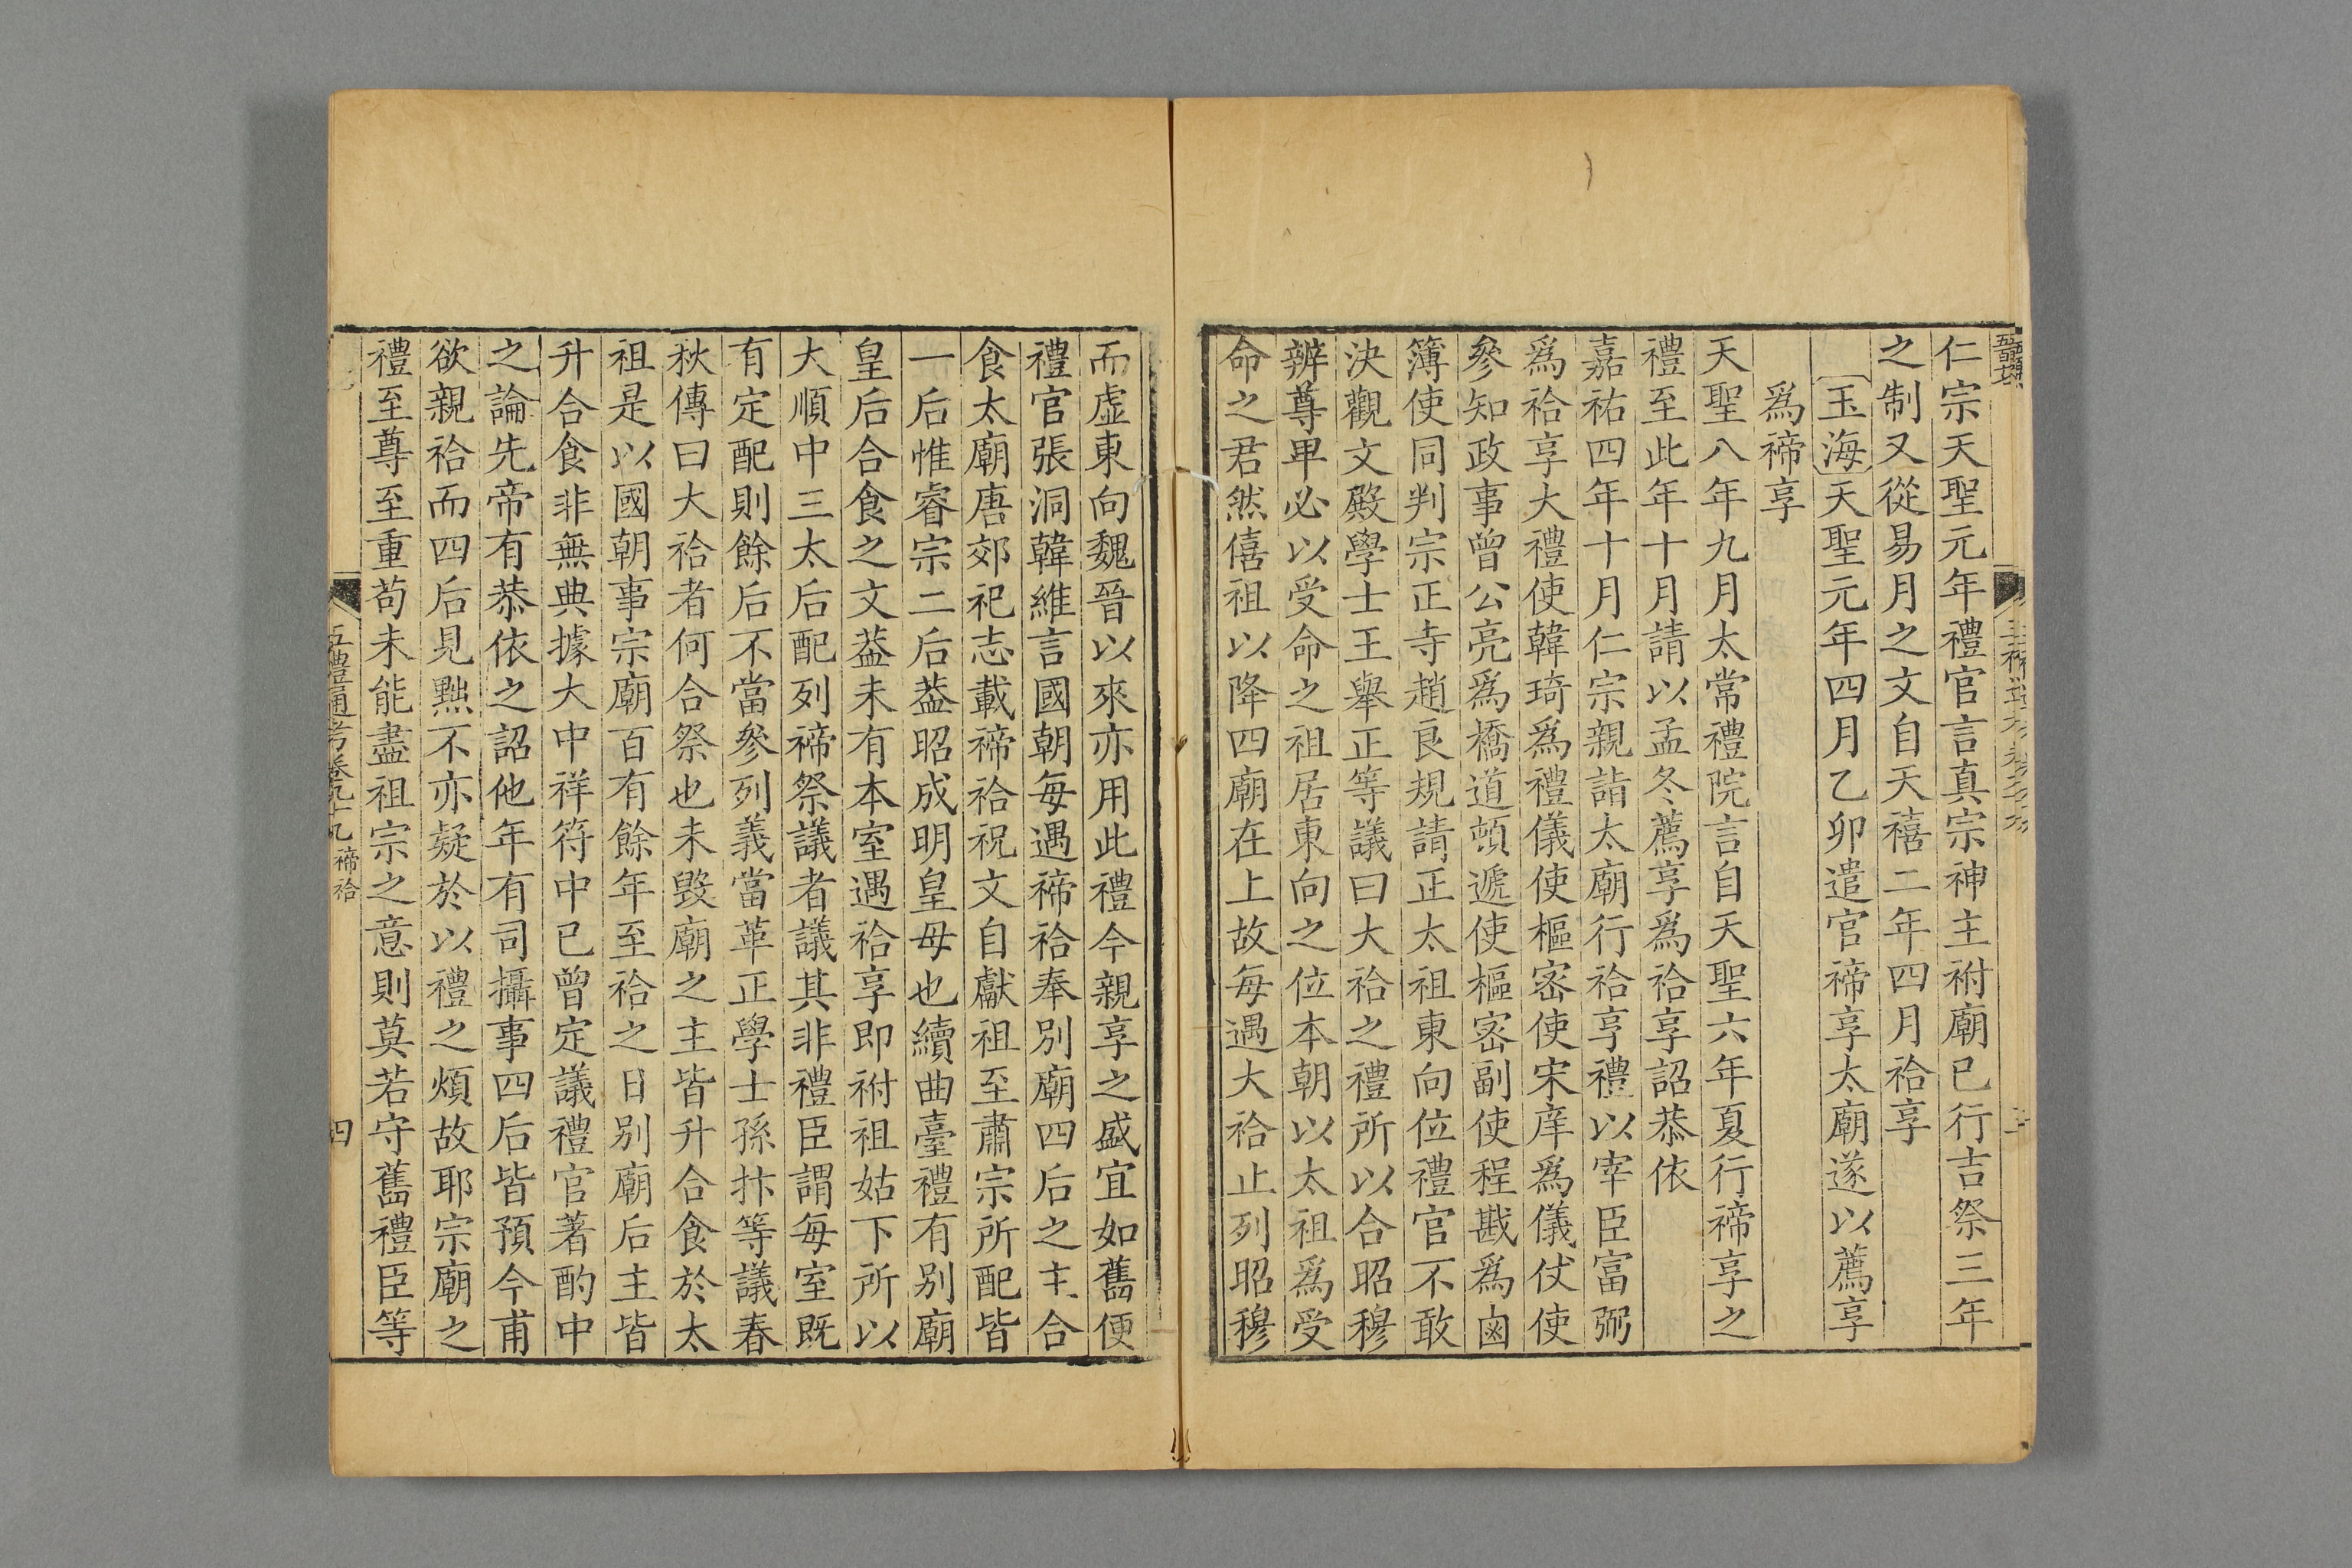 仁宗天聖元年禮官言真宗神主祔廟已行吉祭三年
之制又從易月之文自天禧二年四月祫享
玉海天聖元年四月乙卯遣官禘享太廟遂以薦享
爲禘享
天聖八年九月太常禮院言自天聖六年夏行禘享之
禮至此年十月請以孟冬薦享爲祫享詔恭依
嘉祐四年十月仁宗親詣太廟行祫享禮以宰臣富弼
爲祫享大禮使韓琦爲禮儀使樞密使宋庠爲儀仗使
參知政事曾公亮爲橋道頓遞使樞密副使程戡爲鹵
簿使同判宗正寺趙良規請正太祖東向位禮官不敢
決觀文殿學士王舉正等議曰大祫之禮所以合昭穆
辨尊卑必以受命之祖居東向之位本朝以太祖爲受
命之君然僖祖以降四廟在上故每遇大祫止列昭穆
而虛東向魏晉以來亦用此禮今親享之盛宜如舊便
禮官張洞韓維言國朝每遇禘祫奉別廟四后之主合
食太廟唐郊祀志載禘祫祝文自獻祖至肅宗所配皆
一后惟睿宗二后葢昭成明皇母也續曲臺禮有別廟
皇后合食之文葢未有本室遇祫享即祔祖姑下所以
大順中三太后配列禘祭議者議其非禮臣謂每室既
有定配則餘后不當參列義當革正學士孫抃等議春
秋傳曰大祫者何合祭也未毀廟之主皆升合食於太
祖是以國朝事宗廟百有餘年至祫之日別廟后主皆
升合食非無典據大中祥符中已曾定議禮官著酌中
之論先帝有恭依之詔他年有司攝事四后皆預今甫
欲親祫而四后見黜不亦疑於以禮之煩故耶宗廟之
禮至尊至重苟未能盡祖宗之意則莫若守舊禮臣等
五禮通考卷九十九 禘祫
四